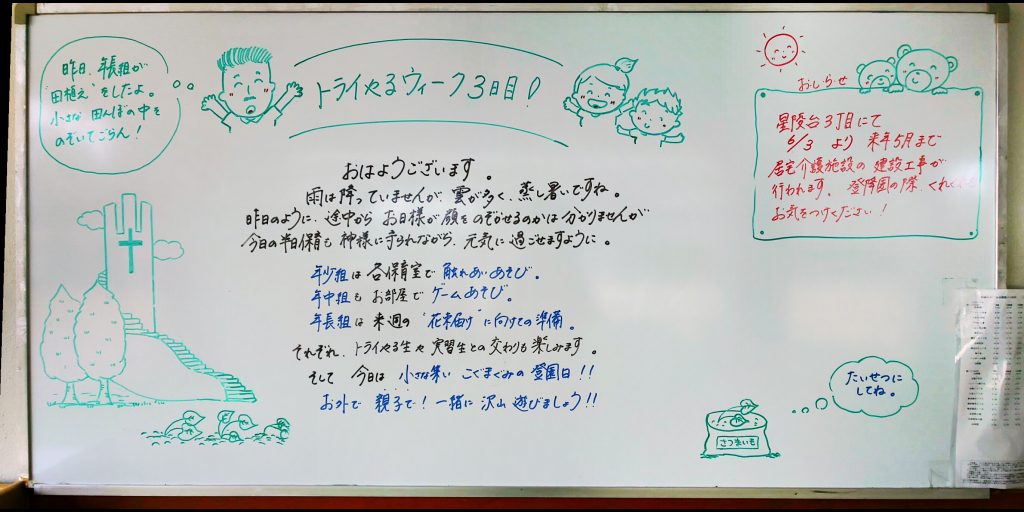 昨日、年長組が
"田植え"をしたよ。
小さな田んぼの中を
のぞいてごらん!
トライやるウィーク3日目!
おしらせ
星陵台3丁目にて
6/3 より 来年5月まで
居宅介護施設の建設工事が
行われます。登降園の際、くれぐれも
お気をつけください!
おはようございます。
雨は降っていませんが、雲が多く、蒸し暑いですね。
昨日のように、途中からお日様が顔をのぞかせるのかは分かりませんが
今日の半日保育も神様に守られながら、元気に過ごせますように。
年少組は各保育室で触れあいあそび。
年中組もお部屋でゲームあそび。
年長組は来週の"花束届け"に向けての準備。
それぞれ、トライやる生や実習生との交わりも楽しみます。
そして 今日は 小さな集い こぐまぐみの登園日!!
お外で 親子で!一緒に 沢山 遊びましょう!!
たいせつに
してね。
さつまいも